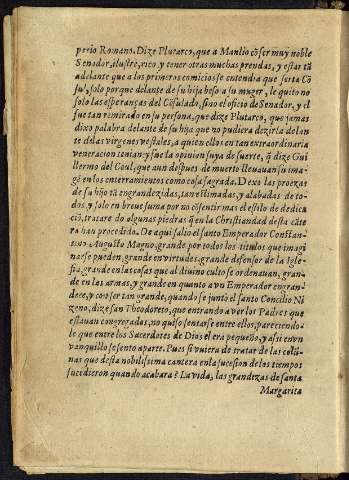 perio Romano. Dize Plutarco, que a Manlio cõ ser muy noble
Senador, ilustre, rico, y tener otras muchas prendas, y estar tã
adelante que a los primeros comicios se entendia que seria Cõ
sul, solo por que delante de su hija beso a su muger, le quito no
solo las esperanças del Cõsulado, sino el oficio de Senador, y el
fue tan remirado en su persona, que dize Plutarco, que jamas
dixo palabra delante de su hija que no pudiera dezirla delan
te de las virgenes vestales, a quien ellos en tan extraordinaria
veneracion tenian: y fue la opinion suya de suerte, q̃ dize Gui
llermo del Coul, que aun despues de muerto lleuauan su ima
gẽ en los enterramientos como cosa sagrada. Dexo las proezas
de su hijo tã engrandezidas, tan estimadas, y alabadas de to-
dos, y solo en breue suma por no cõsentir mas el estilo de dedica
ciõ, tratare de algunas piedras q̃ en la Christiandad desta cãte
ra han procedido. De aqui salio el santo Emperador Constan-
tino, Augusto Magno, grande por todos los titulos que imagi
narse pueden, grande en virtudes, grande defensor de la Igle-
sia, grande en las cosas que al diuino culto se ordenauan, gran-
de en las armas, y grande en quanto a vn Emperador engran-
dece, y con ser tan grande, quando se juntò el santo Concilio Ni
zeno, dize san Theodoreto, que entrando a ver los Padres que
estauan congregados, no quiso sentarse entre ellos, pareciendo-
le que entre los Sacerdotes de Dios el era pequeño, y assi en vn
vanquillo se sento aparte. Pues si vuiera de tratar de las colũ-
nas que desta nobilissima cantera en la sucesion de los tiempos
sucedieron quando acabara? La vida, las grandezas de santa
Margarita